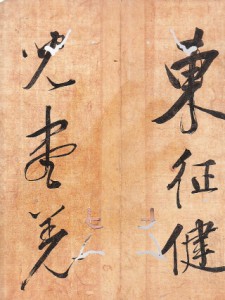 東征健
兒盡